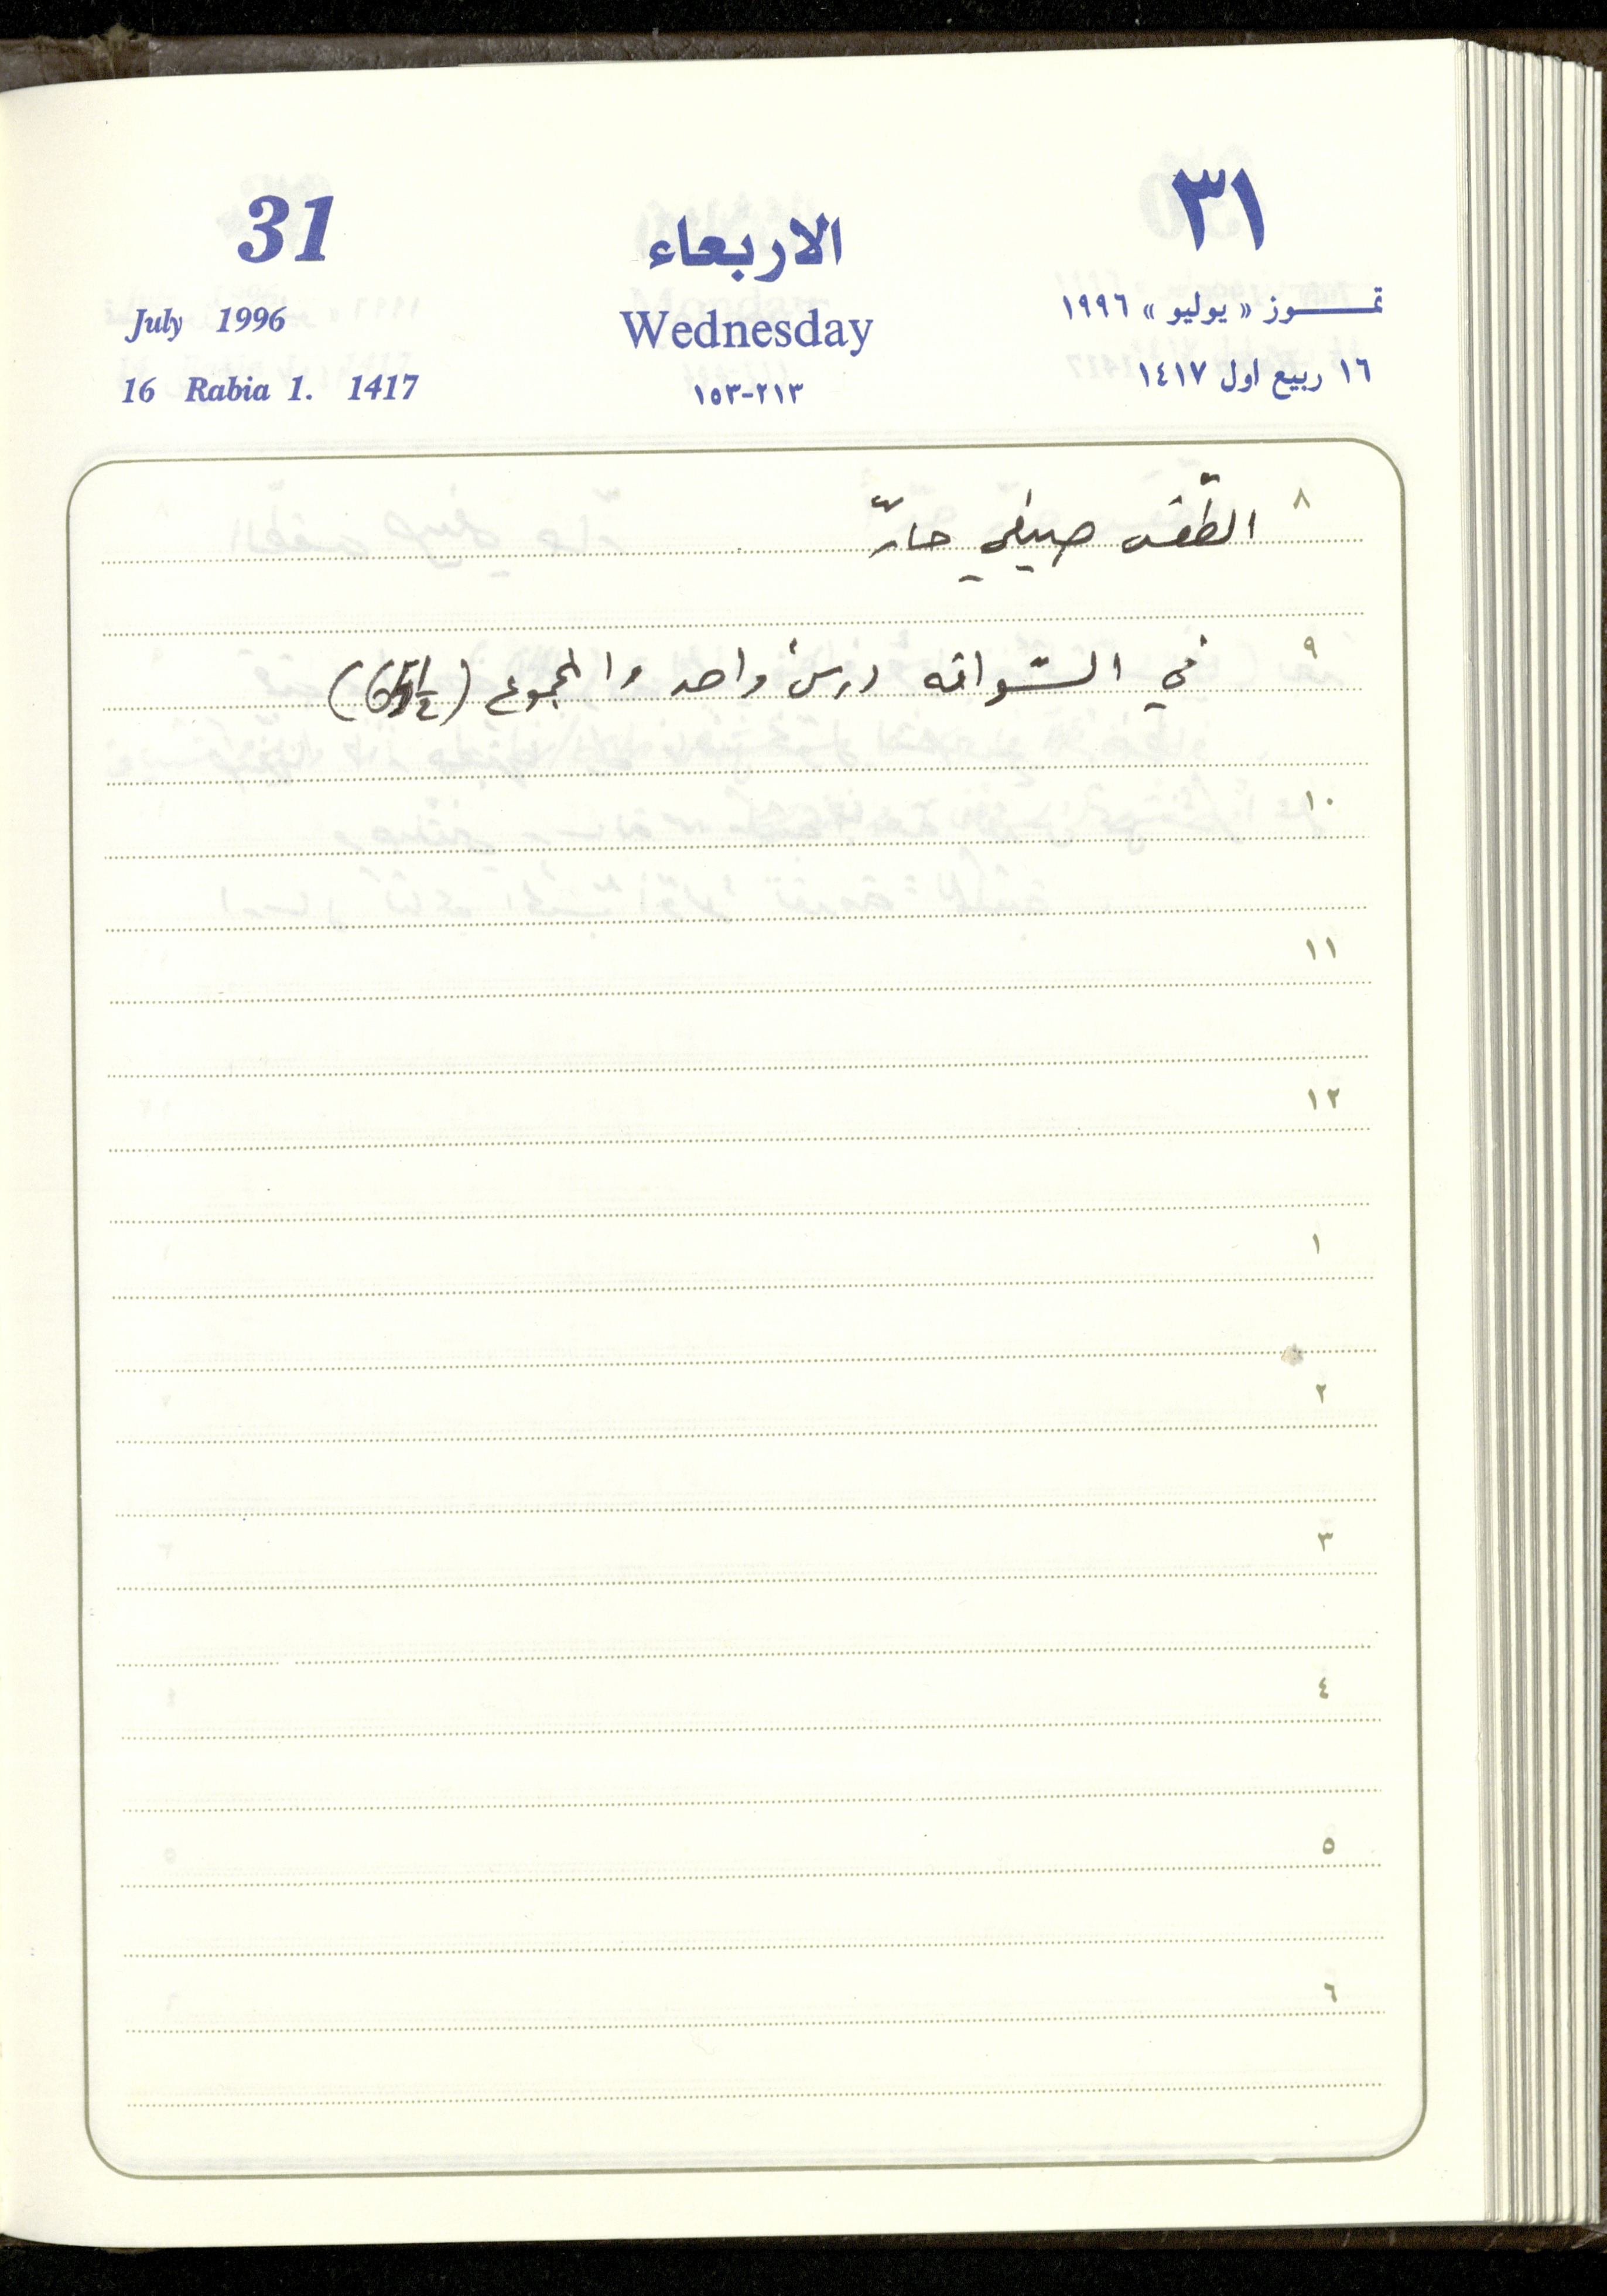 31 الاربعاء ٣١
July 1996 Wednesday تمـــوز « يوليو » ١٩٩٦
16 Rabia 1. 1417 ٢١٣-١٥٣ ١٦ ربيع اول ١٤١٧
٨ الطّقس صيفي حارّ
٩ في السّواقه درسٌ واحد والمجموع
١٠
١١
١٢
١
٢
٣
٤
٥
٦